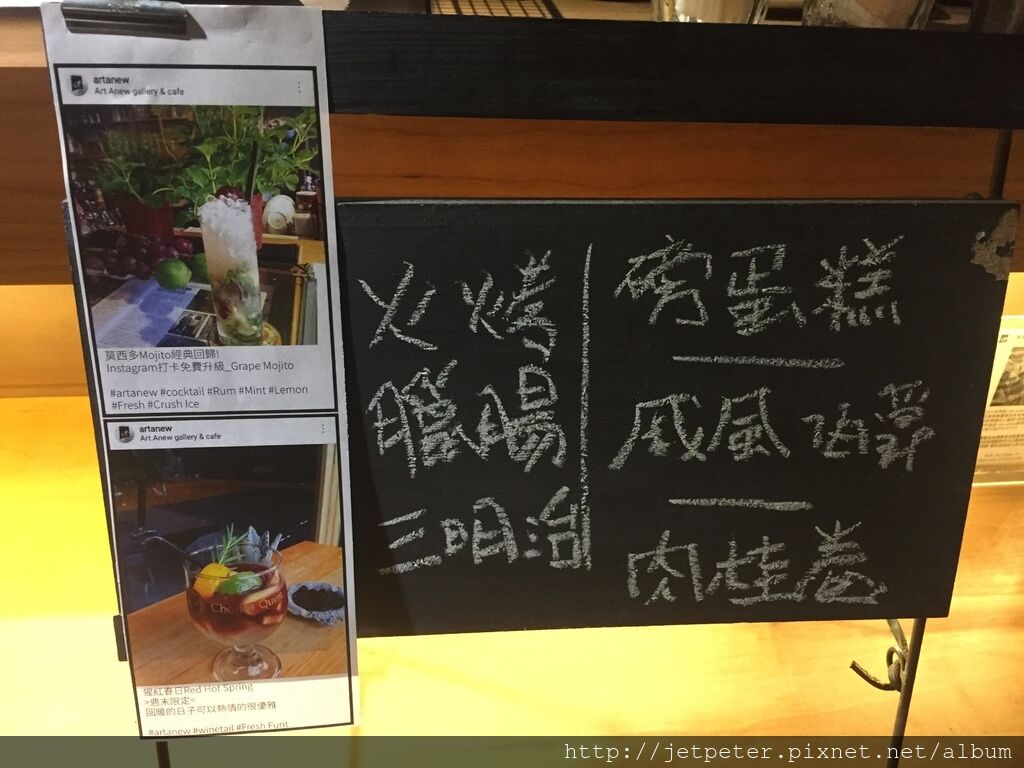 artanew
Art Anew gallery & cafe
莫西多Mojito經典回歸!
Instagram打卡免費升級_Grape Mojito
#artanew #cocktail #Rum #Mint #Lemon
#Fresh #Crush Ice
artanew
Art Anew gallery & cafe
猩紅春日Red Hot Spring
>週末限定<
回暖的日子可以熱情的很優雅
#artanew #winetail #Fresh Furit
火烤
臘腸
三明治
磅蛋糕
戚風
肉桂卷
http://jetpeter.pixnet.net/album